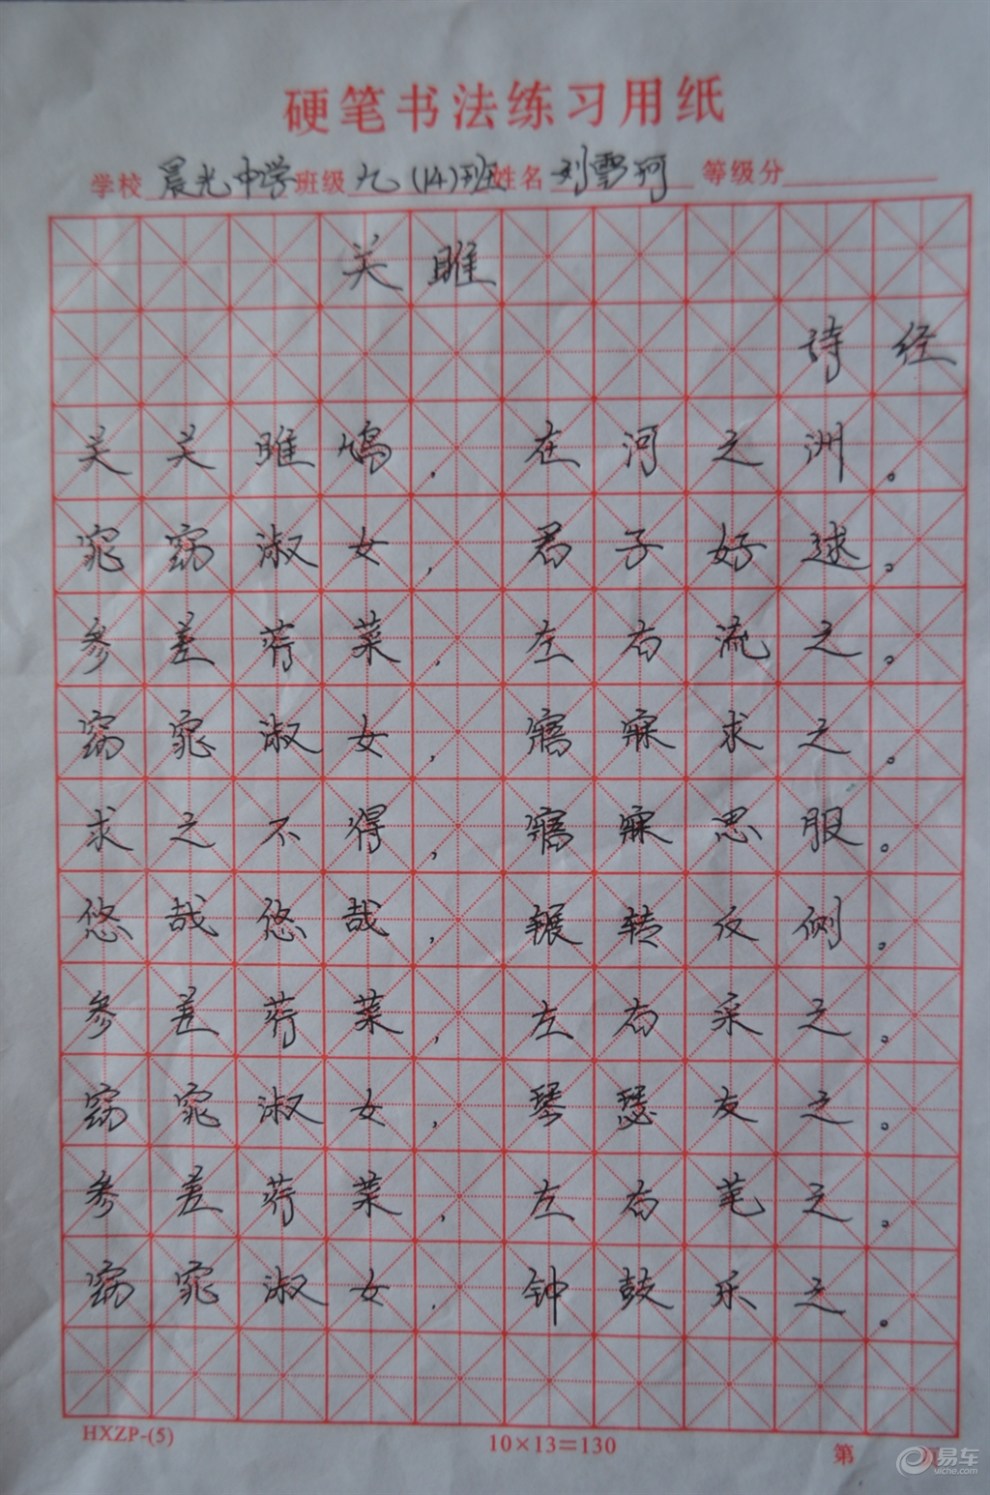 硬笔书法练习用纸
学校 晨光中学 班级 九(14)班 姓名 刘雪珂 等级分
关雎
诗经
关关雎鸠，在河之洲。
窕窈淑女，君子好逑。
参差荇菜，左右流之。
窈窕淑女，寤寐求之。
求之不得，寤寐思服。
悠哉悠哉，辗转反侧。
参差荇菜，左右采之。
窈窕淑女，琴瑟友之。
参差荇菜，左右芼之。
窈窕淑女，钟鼓乐之。
HXZP-(5) 10×13=130 第
易车
yiche.com